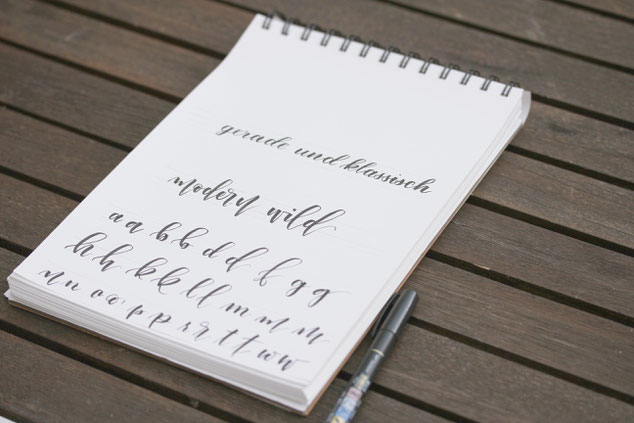 gerade und klassisch
modern wild
a a b b d d f g g
h h k k l l m m m
n n c o p p r r t t w w